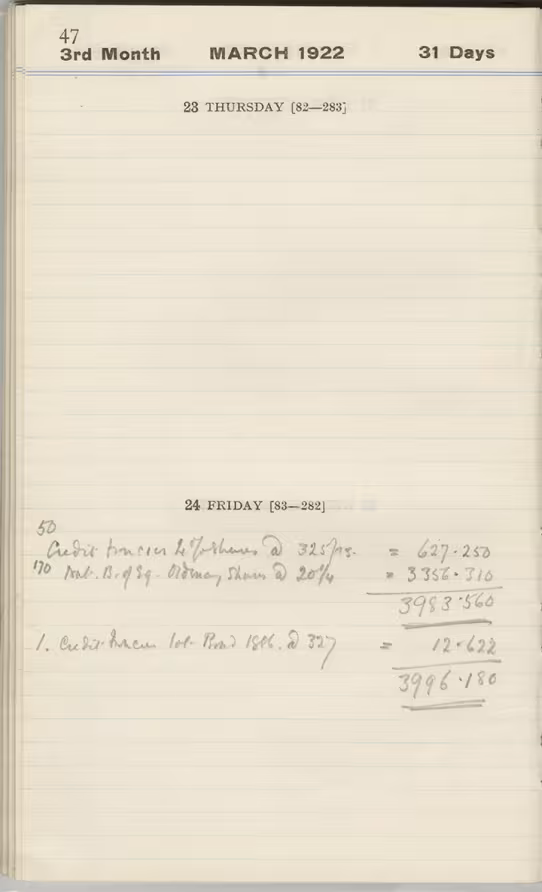 47
3rd Month MARCH 1922 31 Days
23 THURSDAY [82—283]
24 FRIDAY [83—282]
50
Credit Foncier Shares @ 325 = 627·250
170 Nat. B. of Eg. Ordinary Shares @ 20¼ = 3356·310
3983·560
1. Credit Foncier Lot Bond 1886. @ 327 = 12·622
3996·180